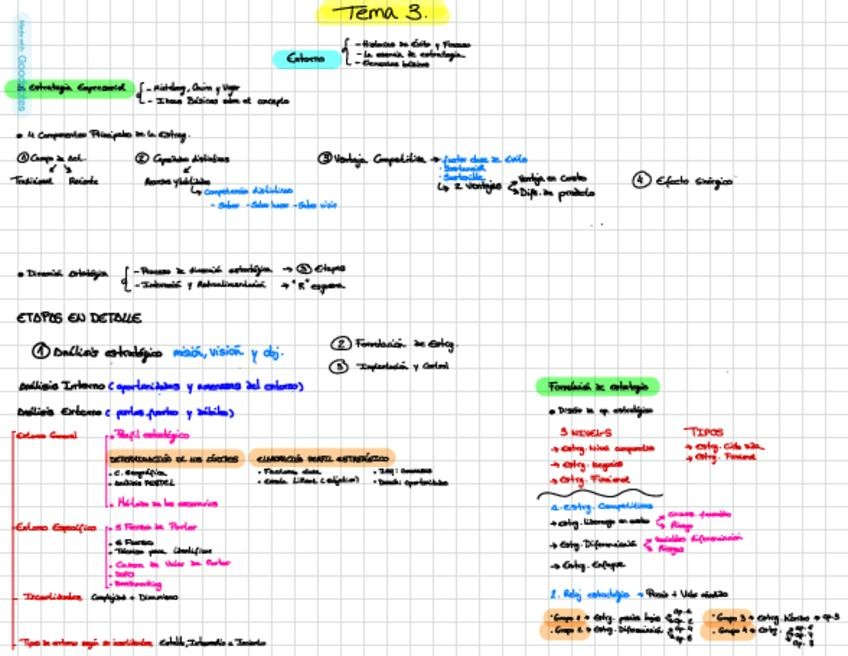 Tema 3.
Made with Goodnotes
Entorno
- Historias de Éxito y Fracaso
- La esencia de estrategia.
- Elementos básicos
Estrategia Empresarial
- Mintzberg, Quinn y Voyer
- Ideas Básicas sobre el concepto
• 4 Componentes Principales de la Estrag.
① Campo de Act.
Tradicional Reciente
② Capacidades distintivas
Recursos y habilidades
↳ Competencias distintivas
- Saber - Saber hacer - Saber vivir
③ Ventaja Competitiva → factor clave de éxito
• Sustancial
• Sostenible
↳ 2 Ventajas
Ventaja en Costes
Dife. de producto
④ Efecto Sinérgico
• Dirección estratégica
- Proceso de dirección estratégica → ③ Etapas
- Interacción y Retroalimentación → "R" esquema
ETAPAS EN DETALLE
① Análisis estratégico misión, visión y obj.
② Formulación de Estrg.
③ Implantación y Control
Análisis Interno (oportunidades y amenazas del entorno)
Análisis Externo (puntos fuertes y débiles)
Entorno General
• Perfil estratégico
DETERMINACIÓN DE LOS LÍMITES
• C. Geográfica
• Análisis PESTEL
ELABORACIÓN PERFIL ESTRATÉGICO
• Factores clave
• Escala Likert (objetivo)
• Izq: amenazas
• Derech: oportunidades
• Método de los escenarios
Entorno Específico
• 5 Fuerzas de Porter
• 6 Fuerzas
• Técnicas para identificar
• Cadena de Valor de Porter
• DAFO
• Benchmarking
- Incertidumbre Complejidad + Dinamismo
Tipos de entorno según su incertidumbre Estable, Intermedio e Incierto
Formulación de estrategia
• Diseño de op. estratégica
3 NIVELES
→ Estrg. Nivel corporativo
→ Estrg. Negocio
→ Estrg. Funcional
TIPOS
→ Estrg. Ciclo Vida
→ Estrg. Funcional
1. Estrg. Competitivas
→ Estrg. Liderazgo en costes
Riesgo
→ Estrg. Diferenciación
Variables diferenciación
Riesgos
→ Estrg. Enfoque
2. Reloj estratégico → Precio + Valor añadido
• Grupo 1 → Estrg. precios bajos
• Grupo 2 → Estrg. Diferenciación
• Grupo 3 → Estrg. Híbrida → op. 3
• Grupo 4 → Estrg.